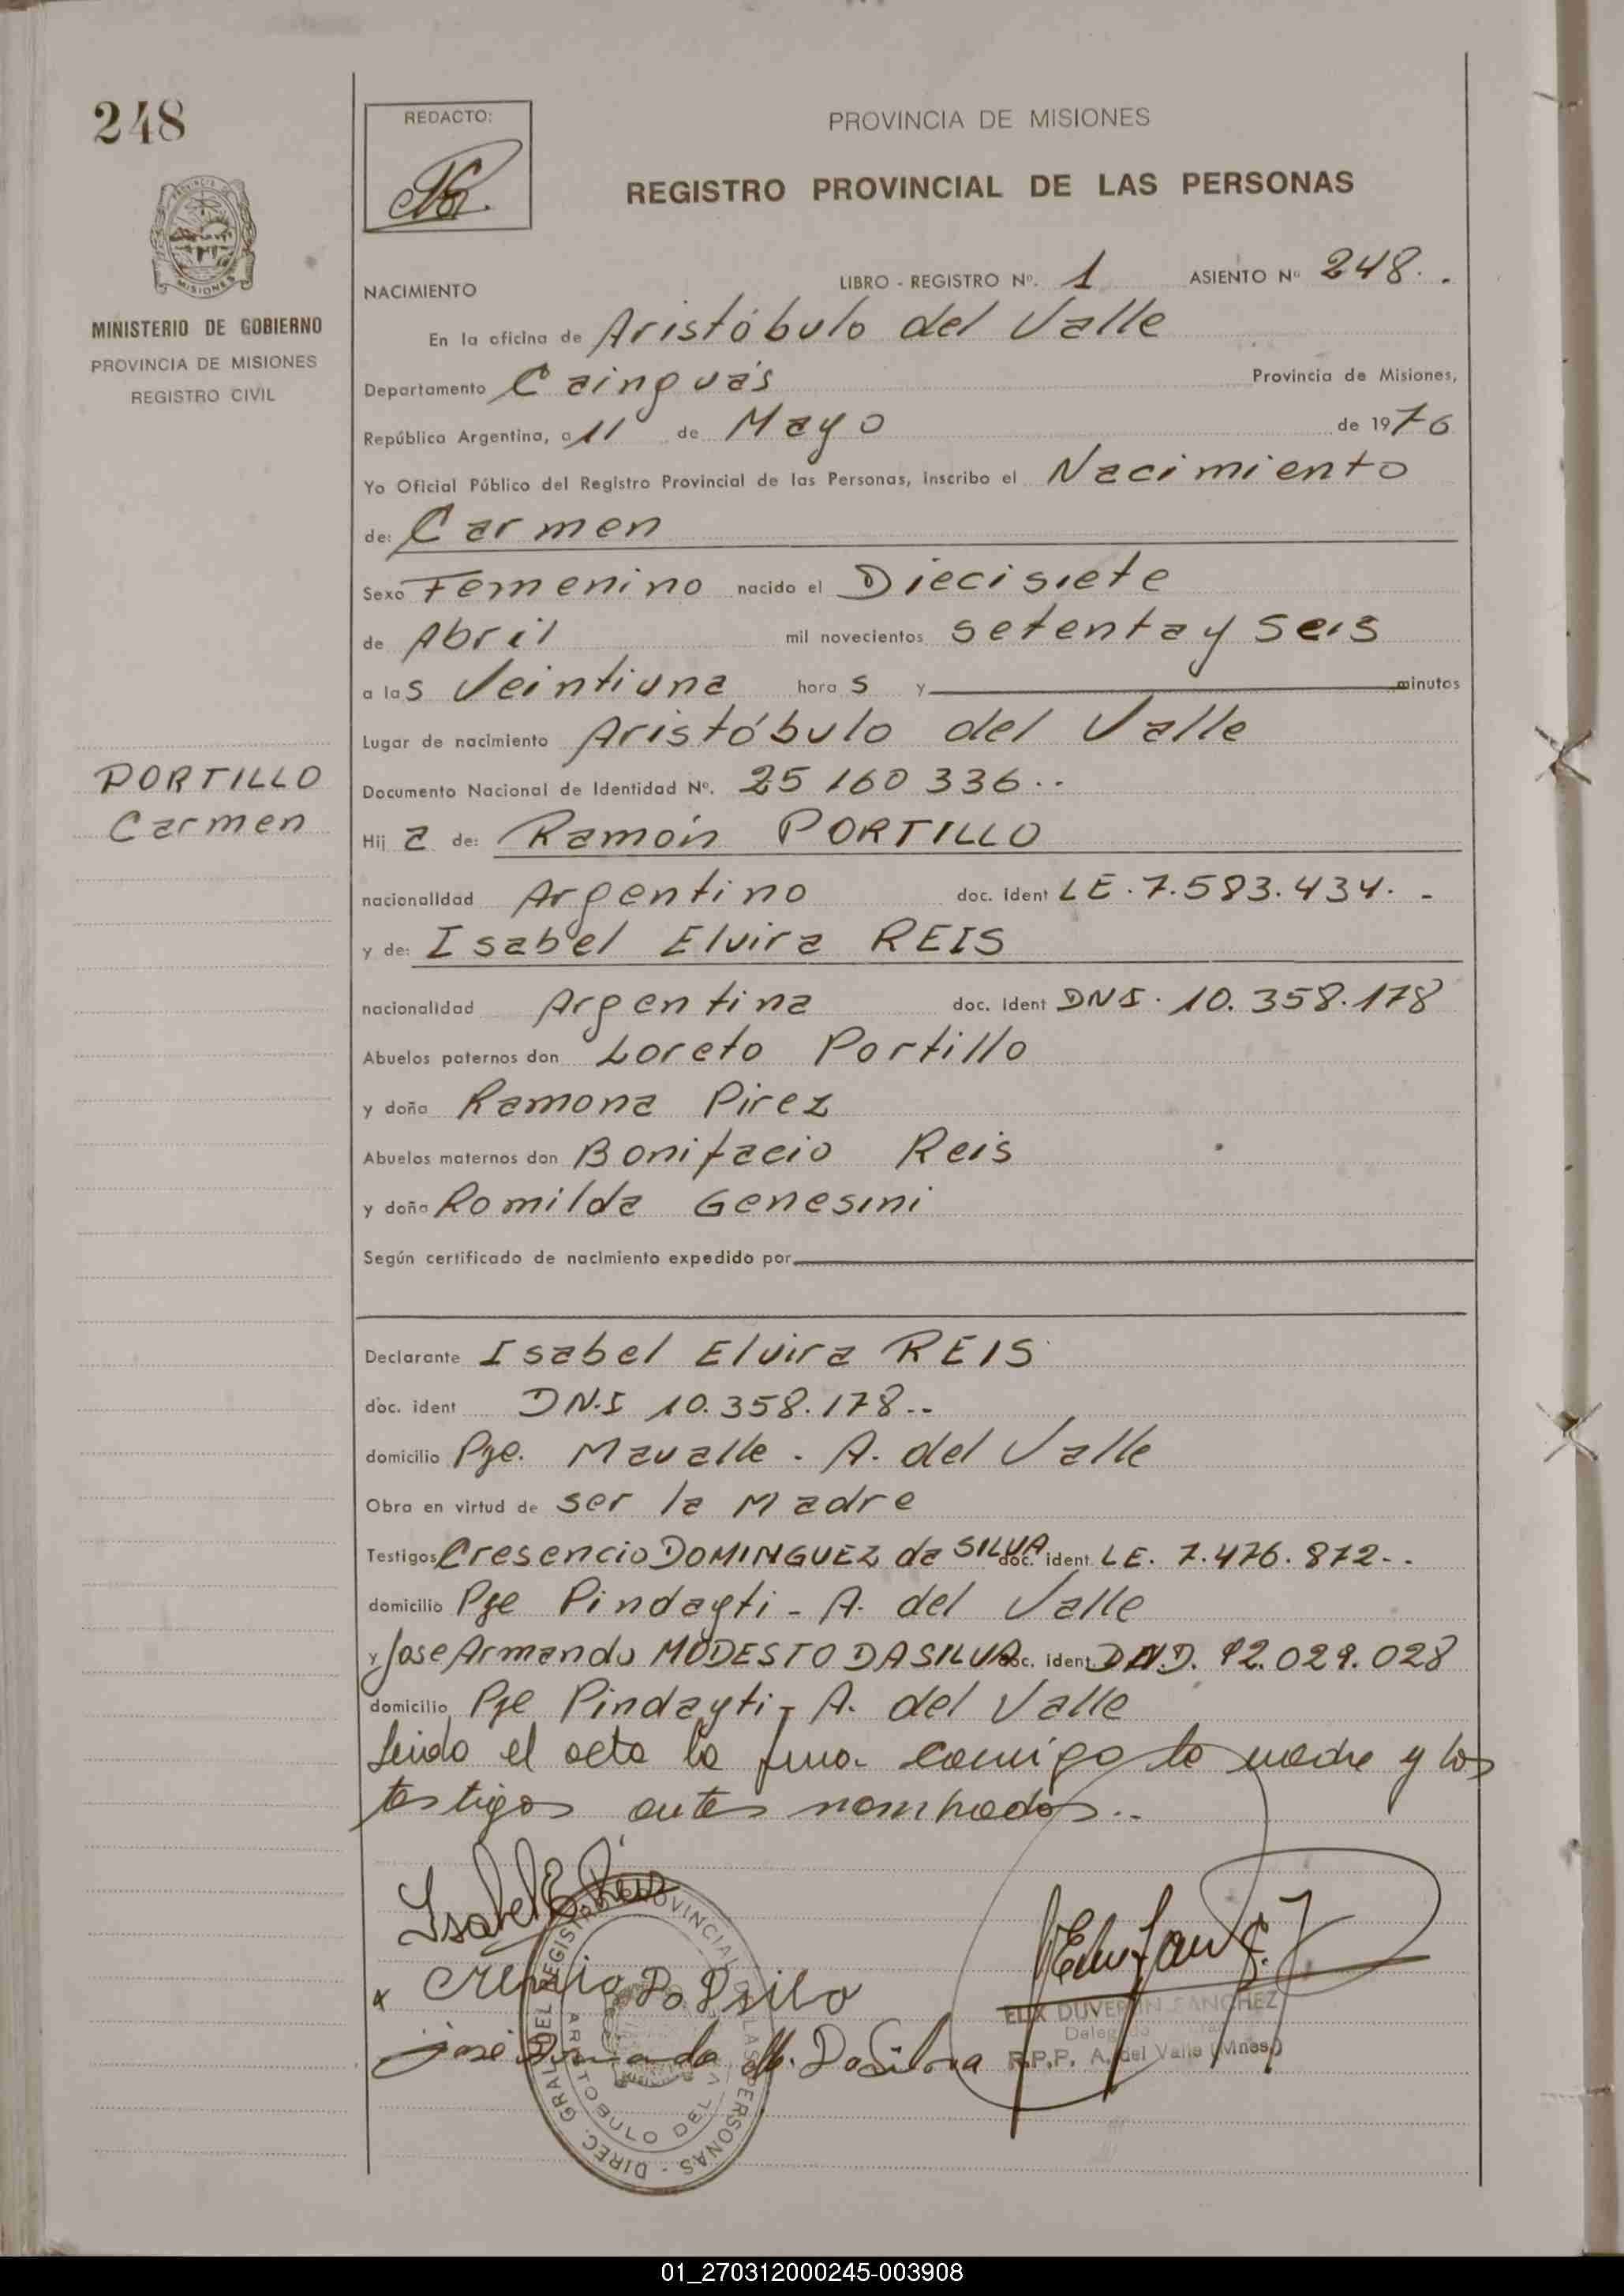 248
REDACTO:
PROVINCIA DE MISIONES
REGISTRO PROVINCIAL DE LAS PERSONAS
MISIONES
MINISTERIO DE GOBIERNO
PROVINCIA DE MISIONES
REGISTRO CIVIL
NACIMIENTO LIBRO - REGISTRO Nº. 1 ASIENTO Nº 248. .
En la oficina de Aristóbulo del Valle
Departamento Cainguás Provincia de Misiones,
República Argentina, a 11 de Mayo de 1976
Yo Oficial Público del Registro Provincial de las Personas, inscribo el Nacimiento
de: Carmen
Sexo Femenino nacido el Diecisiete
de Abril mil novecientos setenta y seis
a las Veintiuna horas y minutos
Lugar de nacimiento Aristóbulo del Valle
Documento Nacional de Identidad Nº. 25 160 336..
PORTILLO
Carmen
Hija de: Ramón PORTILLO
nacionalidad Argentino doc. ident LE. 7.583.434. -
y de: Isabel Elvira REIS
nacionalidad Argentina doc. ident DNI. 10.358.178
Abuelos paternos don Loreto Portillo
y doña Ramona Pirez
Abuelos maternos don Bonifacio Reis
y doña Romilda Genesini
Según certificado de nacimiento expedido por
Declarante Isabel Elvira REIS
doc. ident DN.I 10.358.178..
domicilio Pje. Mavalle - A. del Valle
Obra en virtud de ser la Madre
Testigos Cresencio DOMINGUEZ da SILVA doc. ident. LE. 7.476.872..
domicilio Pje Pindayti - A. del Valle
y Jose Armando MODESTO DASILVA doc. ident. 92.029.028
domicilio Pje Pindayti - A. del Valle
Leido el acta la firma conmigo la madre y los
testigos antes nombrados..
Isabel E. Reis
José Armando M. DaSilva
ELIX DUVER SANCHEZ
R.P.P. A. del Valle (Mnes.)
DIREC. GRAL. DEL REGISTRO PROVINCIAL DE LAS PERSONAS -
ARISTOBULO DEL VALLE
01_270312000245-003908